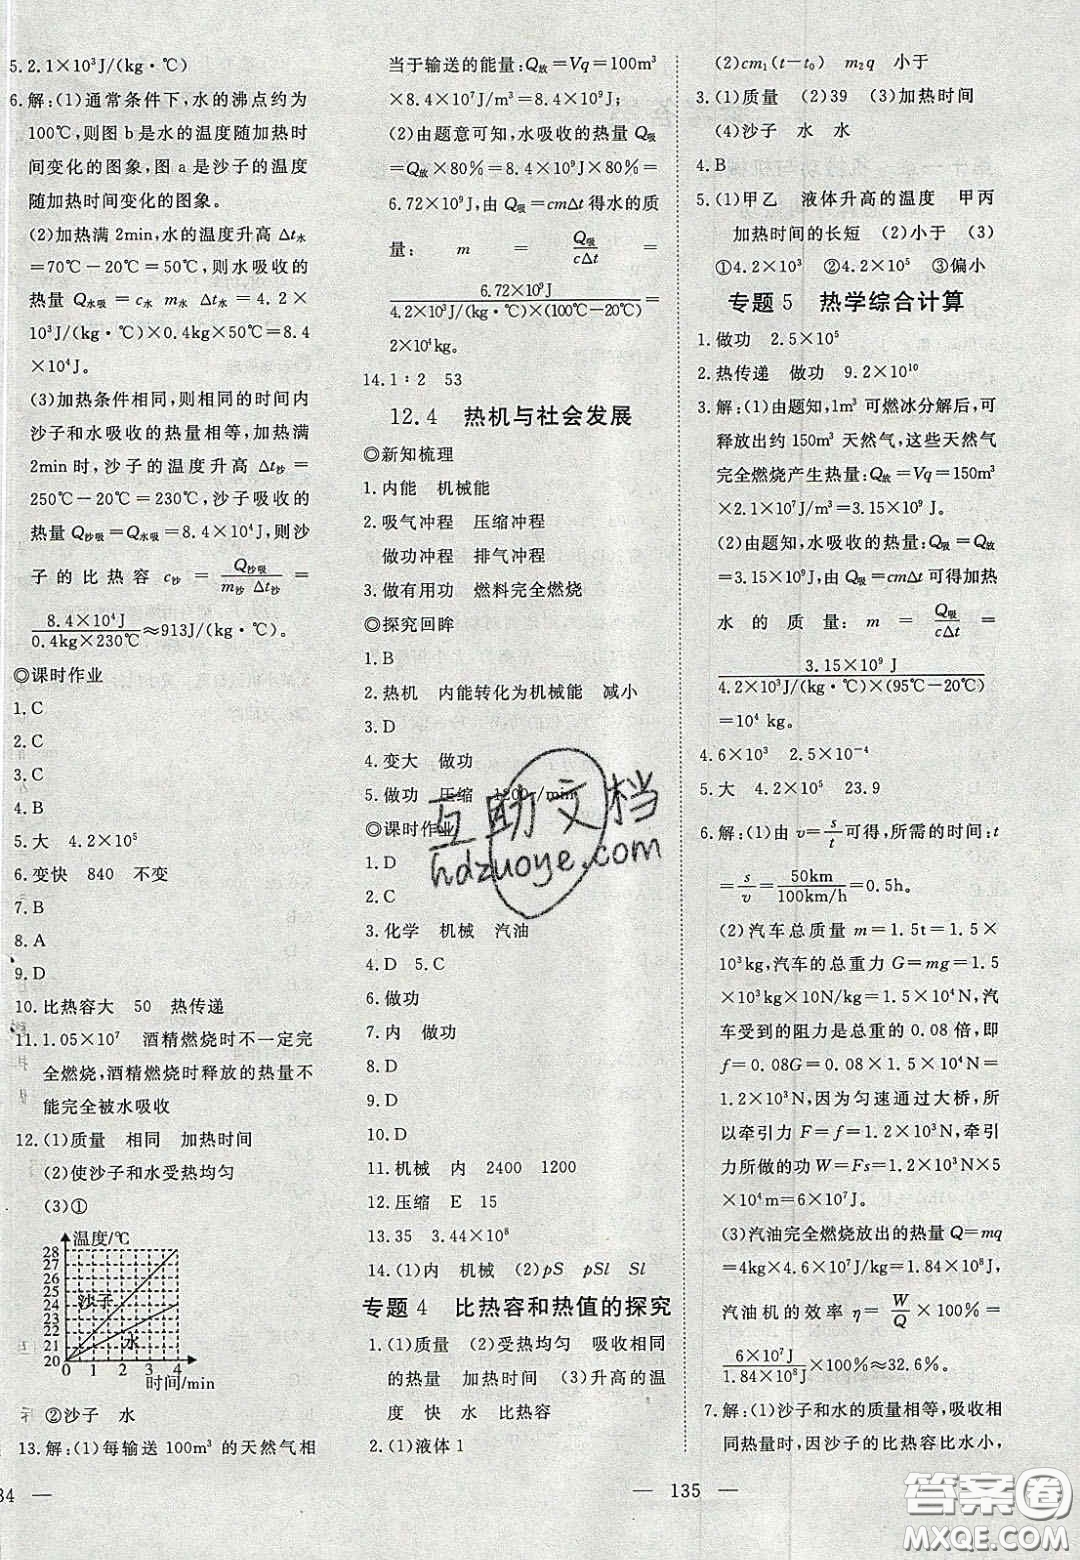 5. 2.1×10³J/(kg·℃)
6. 解:(1)通常条件下,水的沸点约为
100℃,则图 b 是水的温度随加热时
间变化的图象,图 a 是沙子的温度
随加热时间变化的图象。
(2)加热满 2min,水的温度升高 Δt水
=70℃-20℃=50℃,则水吸收的
热量 Q水吸 =c水 m水 Δt水 =4.2×
10³J/(kg·℃)×0.4kg×50℃=8.4
×10⁴J。
(3)加热条件相同,则相同的时间内
沙子和水吸收的热量相等,加热满
2min 时,沙子的温度升高 Δt沙 =
250℃-20℃=230℃,沙子吸收的
热量 Q沙吸=Q水吸=8.4×10⁴J,则沙
子的比热容 c沙 = Q沙吸/(m沙 Δt沙) =
8.4×10⁴J/(0.4kg×230℃)≈913J/(kg·℃)。
◎课时作业
1. C
2. C
3. C
4. B
5. 大 4.2×10⁵
6. 变快 840 不变
7. B
8. A
9. D
10. 比热容大 50 热传递
11. 1.05×10⁷ 酒精燃烧时不一定完
全燃烧,酒精燃烧时释放的热量不
能完全被水吸收
12. (1)质量 相同 加热时间
(2)使沙子和水受热均匀
(3)①
温度/℃
28
27
26
25
24
23
22
21
20
沙子
水
0 1 2 3 4
时间/min
②沙子 水
13. 解:(1)每输送 100m³ 的天然气相
34 —
当于输送的能量:Q放=Vq=100m³
×8.4×10⁷J/m³=8.4×10⁹J。
(2)由题意可知,水吸收的热量 Q吸
=Q放×80%=8.4×10⁹J×80%=
6.72×10⁹J,由 Q吸=cmΔt 得水的质
量: m = Q吸/(cΔt) =
6.72×10⁹J/(4.2×10³J/(kg·℃)×(100℃-20℃))=
2×10⁴kg。
14. 1∶2 53
12.4 热机与社会发展
◎新知梳理
1. 内能 机械能
2. 吸气冲程 压缩冲程
做功冲程 排气冲程
3. 做有用功 燃料完全燃烧
◎探究回眸
1. B
2. 热机 内能转化为机械能 减小
3. D
4. 变大 做功
5. 做功 压缩 1200r/min
◎课时作业
1. D
2. C
3. 化学 机械 汽油
4. D 5. C
6. 做功
7. 内 做功
8. D
9. D
10. D
11. 机械 内 2400 1200
12. 压缩 E 15
13. 35 3.44×10⁸
14. (1)内 机械 (2)pS pSl Sl
专题 4 比热容和热值的探究
1. (1)质量 (2)受热均匀 吸收相同
的热量 加热时间 (3)升高的温
度 快 水 比热容
2. (1)液体 1
— 135 —
(2)cm₁(t-t₀) m₂q 小于
3. (1)质量 (2)39 (3)加热时间
(4)沙子 水 水
4. B
5. (1)甲乙 液体升高的温度 甲丙
加热时间的长短 (2)小于 (3)
①4.2×10⁵ ②4.2×10⁵ ③偏小
专题 5 热学综合计算
1. 做功 2.5×10⁵
2. 热传递 做功 9.2×10¹⁰
3. 解:(1)由题知,1m³ 可燃冰分解后,可
释放出约 150m³ 天然气,这些天然气
完全燃烧产生热量:Q放=Vq=150m³
×2.1×10⁷J/m³=3.15×10⁹J。
(2)由题知,水吸收的热量:Q吸=Q放
=3.15×10⁹J,由 Q吸=cmΔt 可得加热
水的质量: m = Q吸/(cΔt) =
3.15×10⁹J/(4.2×10³J/(kg·℃)×(95℃-20℃))
=10⁴ kg。
4. 6×10³ 2.5×10⁻⁴
5. 大 4.2×10⁵ 23.9
6. 解:(1)由 v=s/t 可得,所需的时间:t
=s/v=50km/(100km/h)=0.5h。
(2)汽车总质量 m=1.5t=1.5×
10³kg,汽车的总重力 G=mg=1.5
×10³kg×10N/kg=1.5×10⁴N,汽
车受到的阻力是总重的 0.08 倍,即
f=0.08G=0.08×1.5×10⁴N=
1.2×10³N,因为匀速通过大桥,所
以牵引力 F=f=1.2×10³N,牵引
力所做的功 W=Fs=1.2×10³N×5
×10⁴m=6×10⁷J。
(3)汽油完全燃烧放出的热量 Q=mq
=4kg×4.6×10⁷J/kg=1.84×10⁸J,
汽油机的效率 η=W/Q×100%=
6×10⁷J/(1.84×10⁸J)×100%≈32.6%。
7. 解:(1)沙子和水的质量相等,吸收相
同热量时,因沙子的比热容比水小,
互助文档
hdzuoye.com
答案圈
MXQE.COM